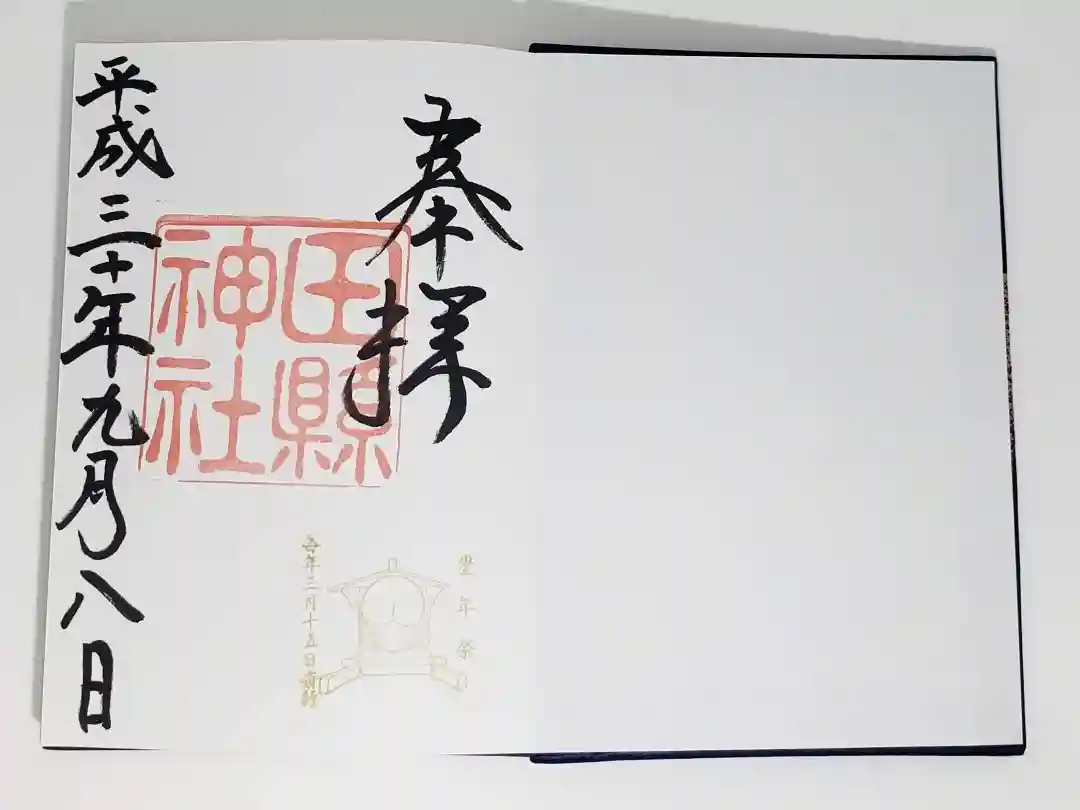 奉拝
田縣
神社
平成三十年九月八日
豊年祭
毎年三月十五日斎行